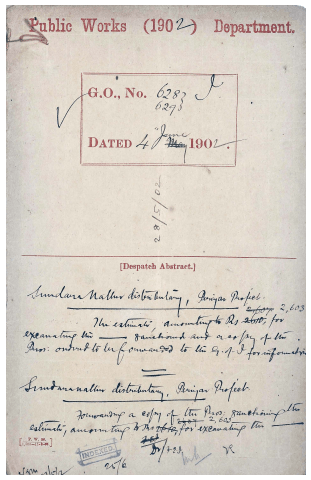 Public Works (1902) Department.
G.O., No. 6283 I
6293
DATED 4 June 1902.
28/5/02
[Despatch Abstract.]
distributary, Periyar Project.
The estimate, amounting to Rs. 2,603 for
excavating the sanctioned and a copy of the
Proc. ordered to be forwarded to the G. of I for information
distributary, Periyar Project
Forwarding a copy of the Proc. sanctioning the
estimate, amounting to Rs. 2,603, for excavating the
INDEXED
25/6